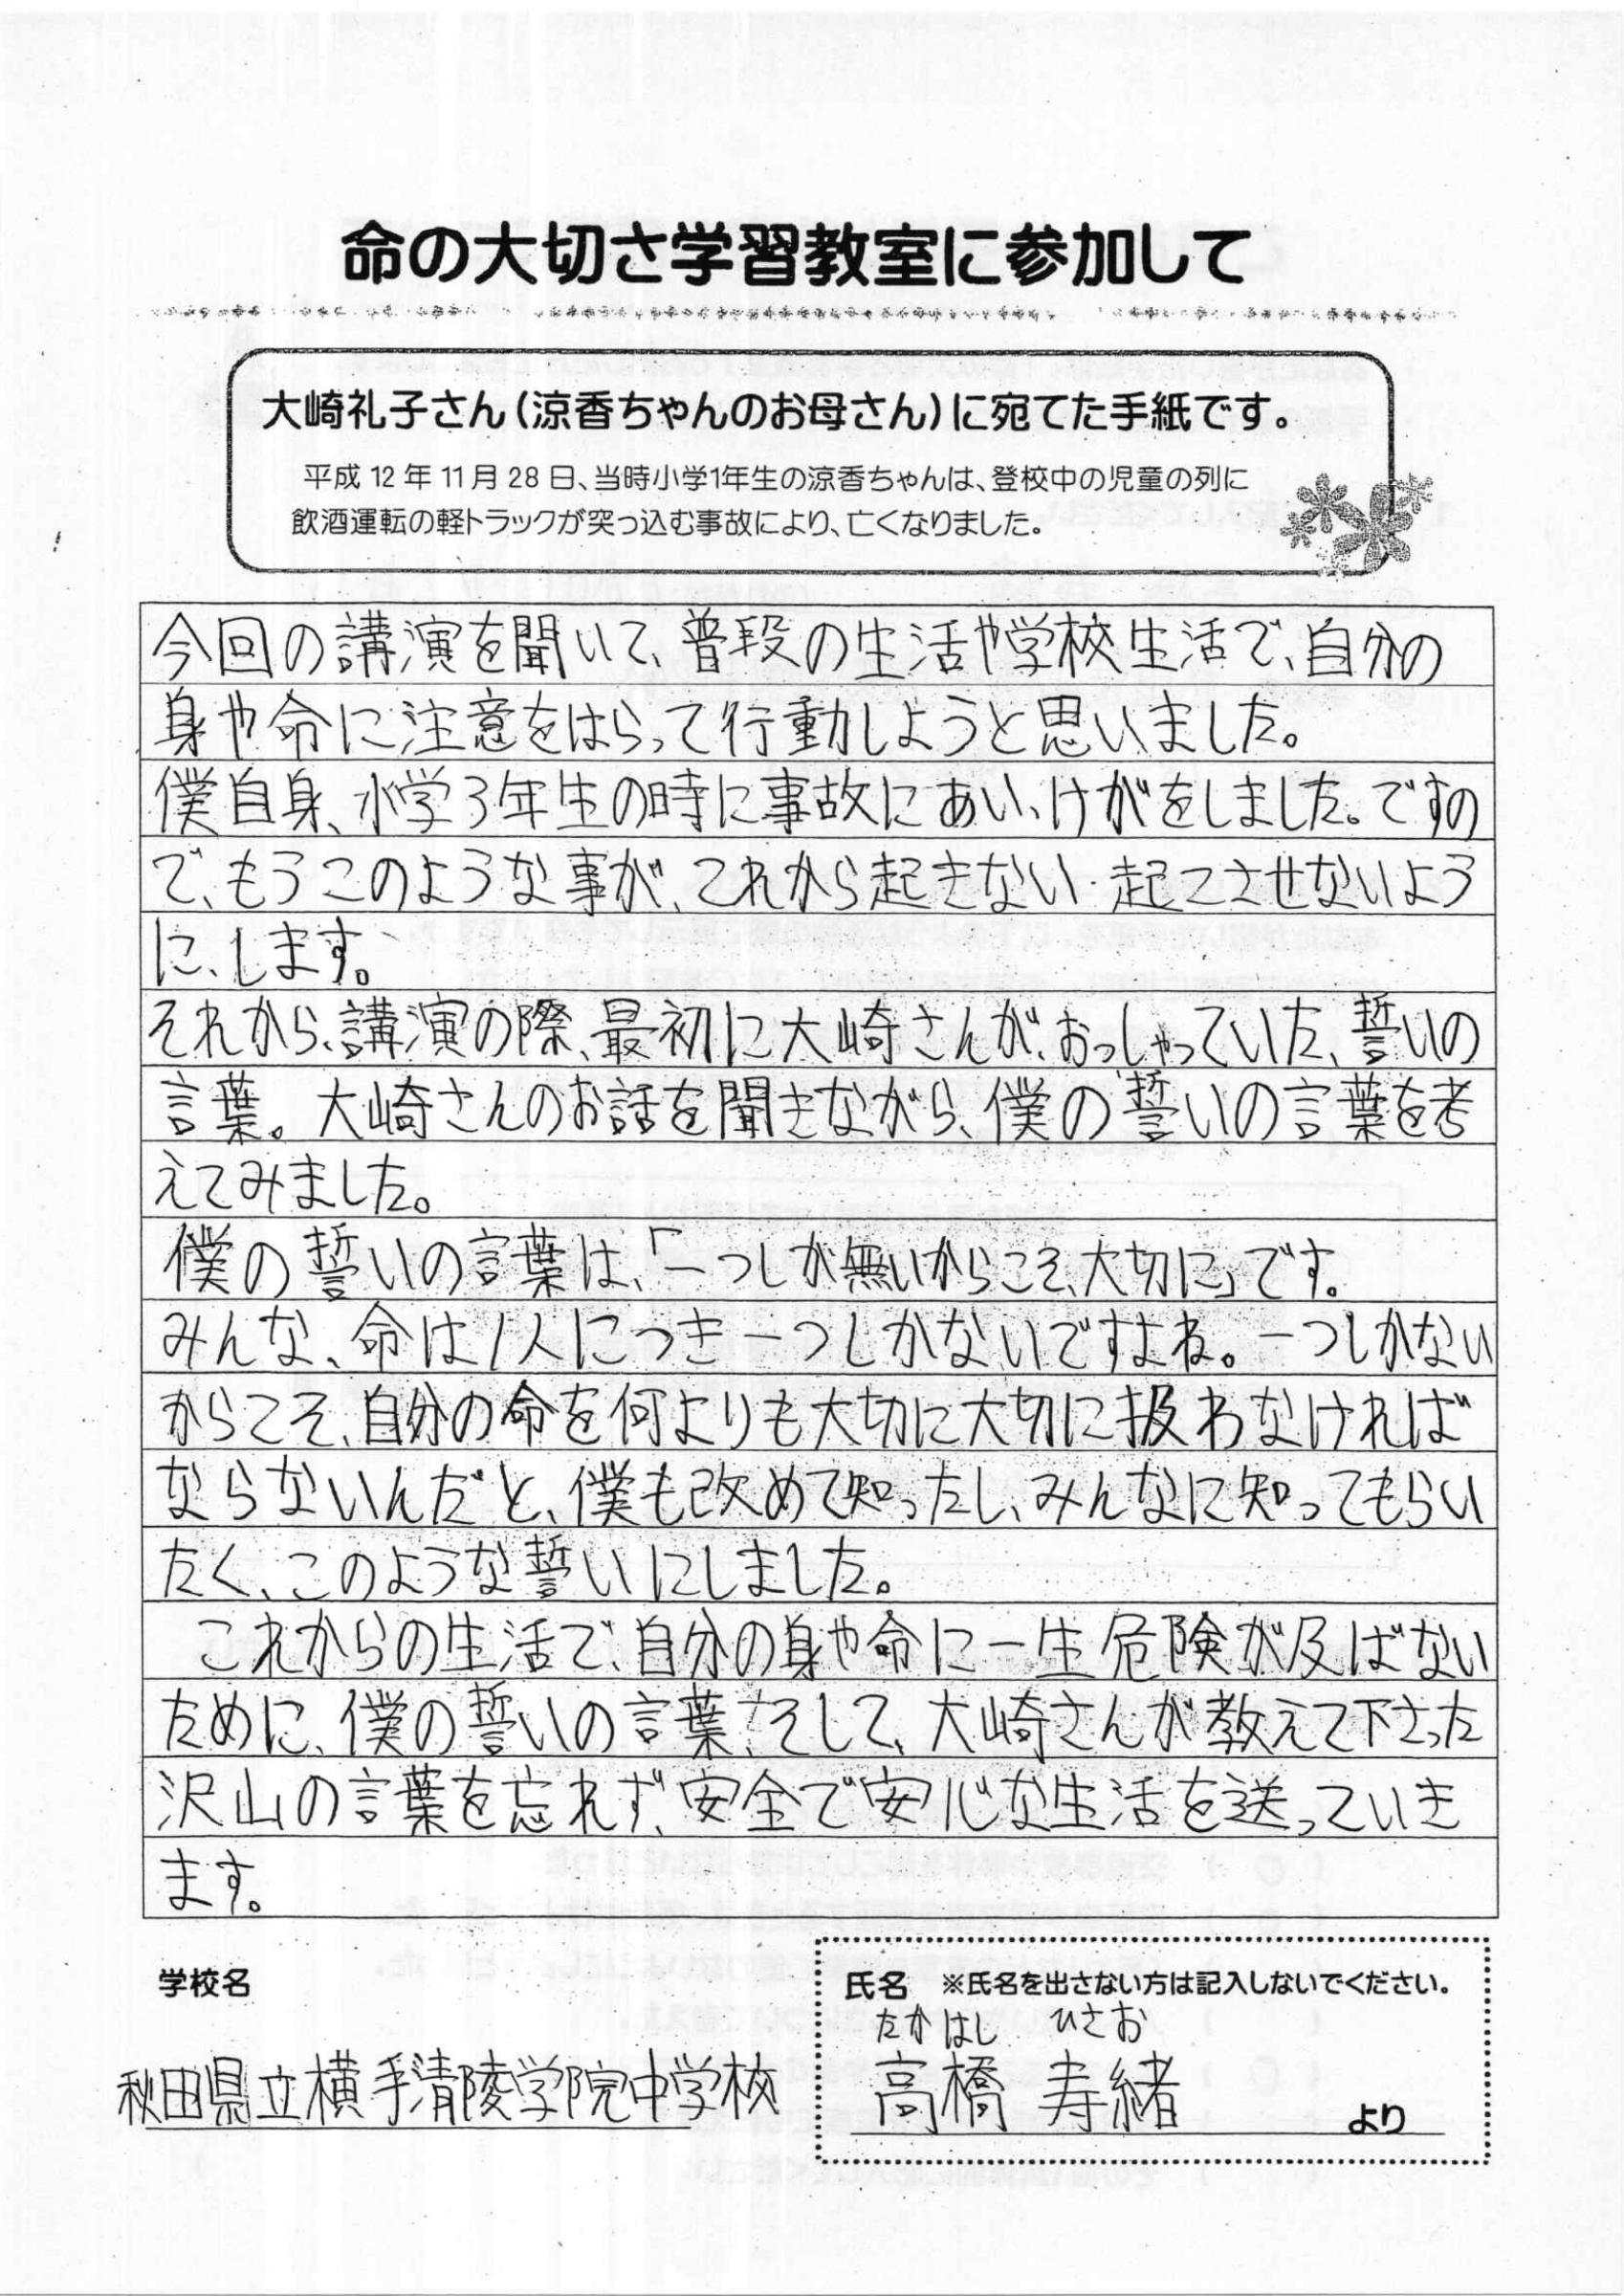 命の大切さ学習教室に参加して
大崎礼子さん(涼香ちゃんのお母さん)に宛てた手紙です。
平成12年11月28日、当時小学1年生の涼香ちゃんは、登校中の児童の列に
飲酒運転の軽トラックが突っ込む事故により、亡くなりました。
今回の講演を聞いて、普段の生活や学校生活で、自分の
身や命に注意をはらって行動しようと思いました。
僕自身、小学3年生の時に事故にあい、けがをしました。ですの
で、もうこのような事が、これから起きない・起こさせないよう
に、します。
それから、講演の際、最初に大崎さんが、おっしゃっていた、誓いの
言葉。大崎さんのお話を聞きながら、僕の誓いの言葉を考
えてみました。
僕の誓いの言葉は、「一つしか無いからこそ、大切に」です。
みんな、命は1人につき一つしかないですよね。一つしかない
からこそ、自分の命を何よりも大切に大切に扱わなければ
ならないんだと、僕も改めて知ったし、みんなに知ってもらい
たく、このような誓いにしました。
これからの生活で、自分の身や命に一生危険が及ばない
ために、僕の誓いの言葉、そして、大崎さんが教えて下さった
沢山の言葉を忘れず、安全で安心な生活を送っていき
ます。
学校名
秋田県立横手清陵学院中学校
氏名 ※氏名を出さない方は記入しないでください。
たかはし ひさお
高橋 寿緒 より